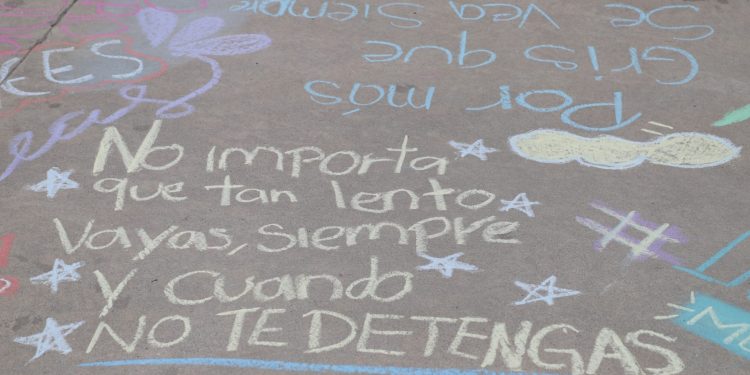 No importa
que tan lento
vayas, siempre
y cuando
NO TE DETENGAS
Por más
Gris que
Se vea siempre